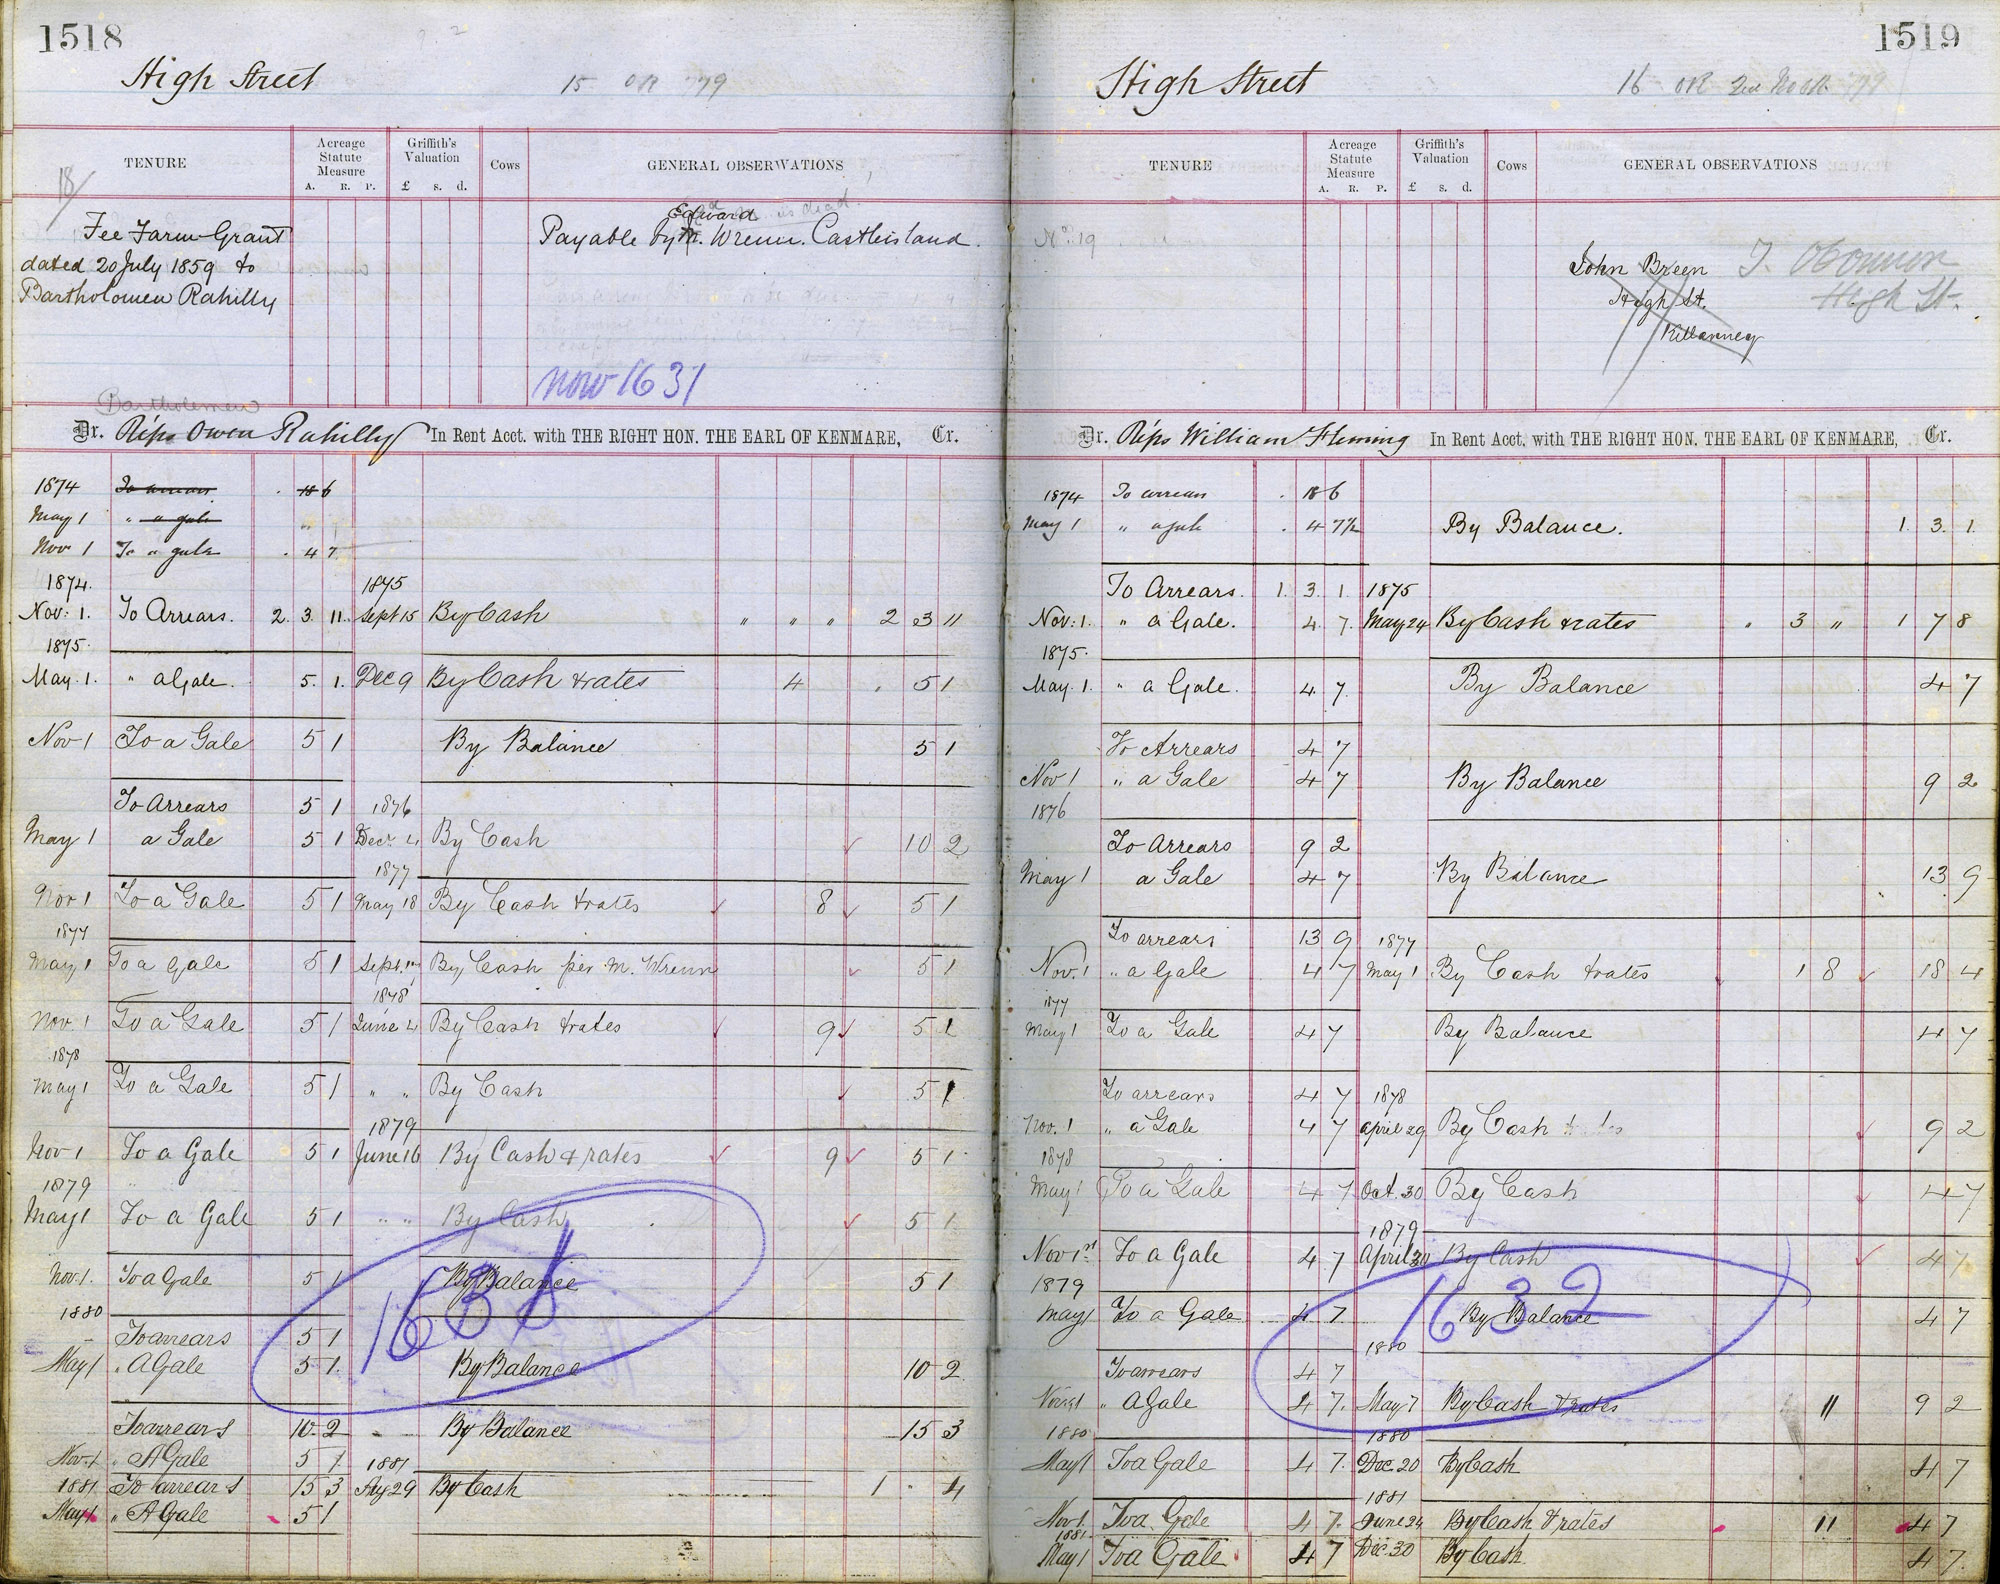 1518
High Street
15 OR '79
18/
TENURE
Acreage Statute Measure
A. R. P.
Griffith's Valuation
£ s. d.
Cows
GENERAL OBSERVATIONS
Fee Farm Grant
dated 20 July 1859 to
Bartholomew Rahilly
is dead.
Edward
Payable by M. Wrenn. Castleisland.
now 1631
Bartholomew
Dr. Reps Owen Rahilly In Rent Acct. with THE RIGHT HON. THE EARL OF KENMARE, Cr.
1874 To arrears . 18 6
May 1 " a gale "
Nov 1 To " gale . 4 7
1874. 1875
Nov: 1. To Arrears. 2. 3. 11. Sept 15 By Cash " " " 2 3 11
1875.
May. 1. " a Gale. 5. 1. Dec 9 By Cash & rates 4 . 5 1
Nov 1 To a Gale 5 1 By Balance 5 1
To Arrears 5 1 1876
May 1 a Gale 5 1 Decr. 4 By Cash 10 2
1877
Nov 1 To a Gale 5 1 May 18 By Cash & rates 8 5 1
1877
May 1 To a Gale 5 1 Sept. By Cash per M. Wrenn 5 1
1878
Nov. 1 To a Gale 5 1 June 4 By Cash & rates 9 5 1
1878
May 1 To a Gale 5 1 " " By Cash 5 1
1879
Nov 1 To a Gale 5 1 June 16 By Cash & rates 9 5 1
1879
May 1 To a Gale 5 1 " " By Cash 5 1
Nov. 1. To a Gale 5 1 By Balance 5 1
1631
1880
To arrears 5 1
May 1 " A Gale 5 1. By Balance 10 2
To arrears 10 2 By Balance 15 3
Nov. 1 " A Gale 5 1 1881
1881 To arrears 15 3 Aug 29 By Cash 1 . 4
May 1 " A Gale 5 1
1519
High Street
16 OR
79
TENURE
Acreage Statute Measure
A. R. P.
Griffith's Valuation
£ s. d.
Cows
GENERAL OBSERVATIONS
No. 19
John Breen T. O'Connor
High St. High St.
Killarney
Dr. Reps William Fleming In Rent Acct. with THE RIGHT HON. THE EARL OF KENMARE, Cr.
1874 To arrears . 18 6
May 1 " a gale . 4 7½ By Balance. 1. 3. 1.
To Arrears. 1. 3. 1. 1875
Nov: 1. " a Gale. 4. 7. May 24 By Cash & rates " 3 " 1 7 8
1875.
May. 1. " a Gale. 4. 7. By Balance 4 7
To Arrears 4 7
Nov 1 " a Gale 4 7 By Balance 9 2
1876
To Arrears 9 2
May 1 a Gale 4 7 By Balance 13 9
To arrears 13 9 1877
Nov. 1 " a Gale 4 7 May 1 By Cash & rates 1 8 18 4
1877
May 1 To a Gale 4 7 By Balance 4 7
To arrears 4 7 1878
Nov. 1 " a Gale 4 7 April 29 By Cash 9 2
1878
May 1 To a Gale 4 7 Oct. 30 By Cash 4 7
1879
Nov 1st To a Gale 4 7 April 30 By Cash 4 7
1879
May 1 To a Gale 4 7 By Balance 4 7
1632
1880
To arrears 4 7
Nov 1 " A Gale 4 7. May 7 By Cash & rates 11 9 2
1880 1880
May 1 To a Gale 4 7 Dec. 20 By Cash 4 7
1881
Nov 1. To a Gale 4 7. June 24 By Cash & rates 11 4 7
1881
May 1 To a Gale 4 7 Dec. 30 By Cash 4 7.